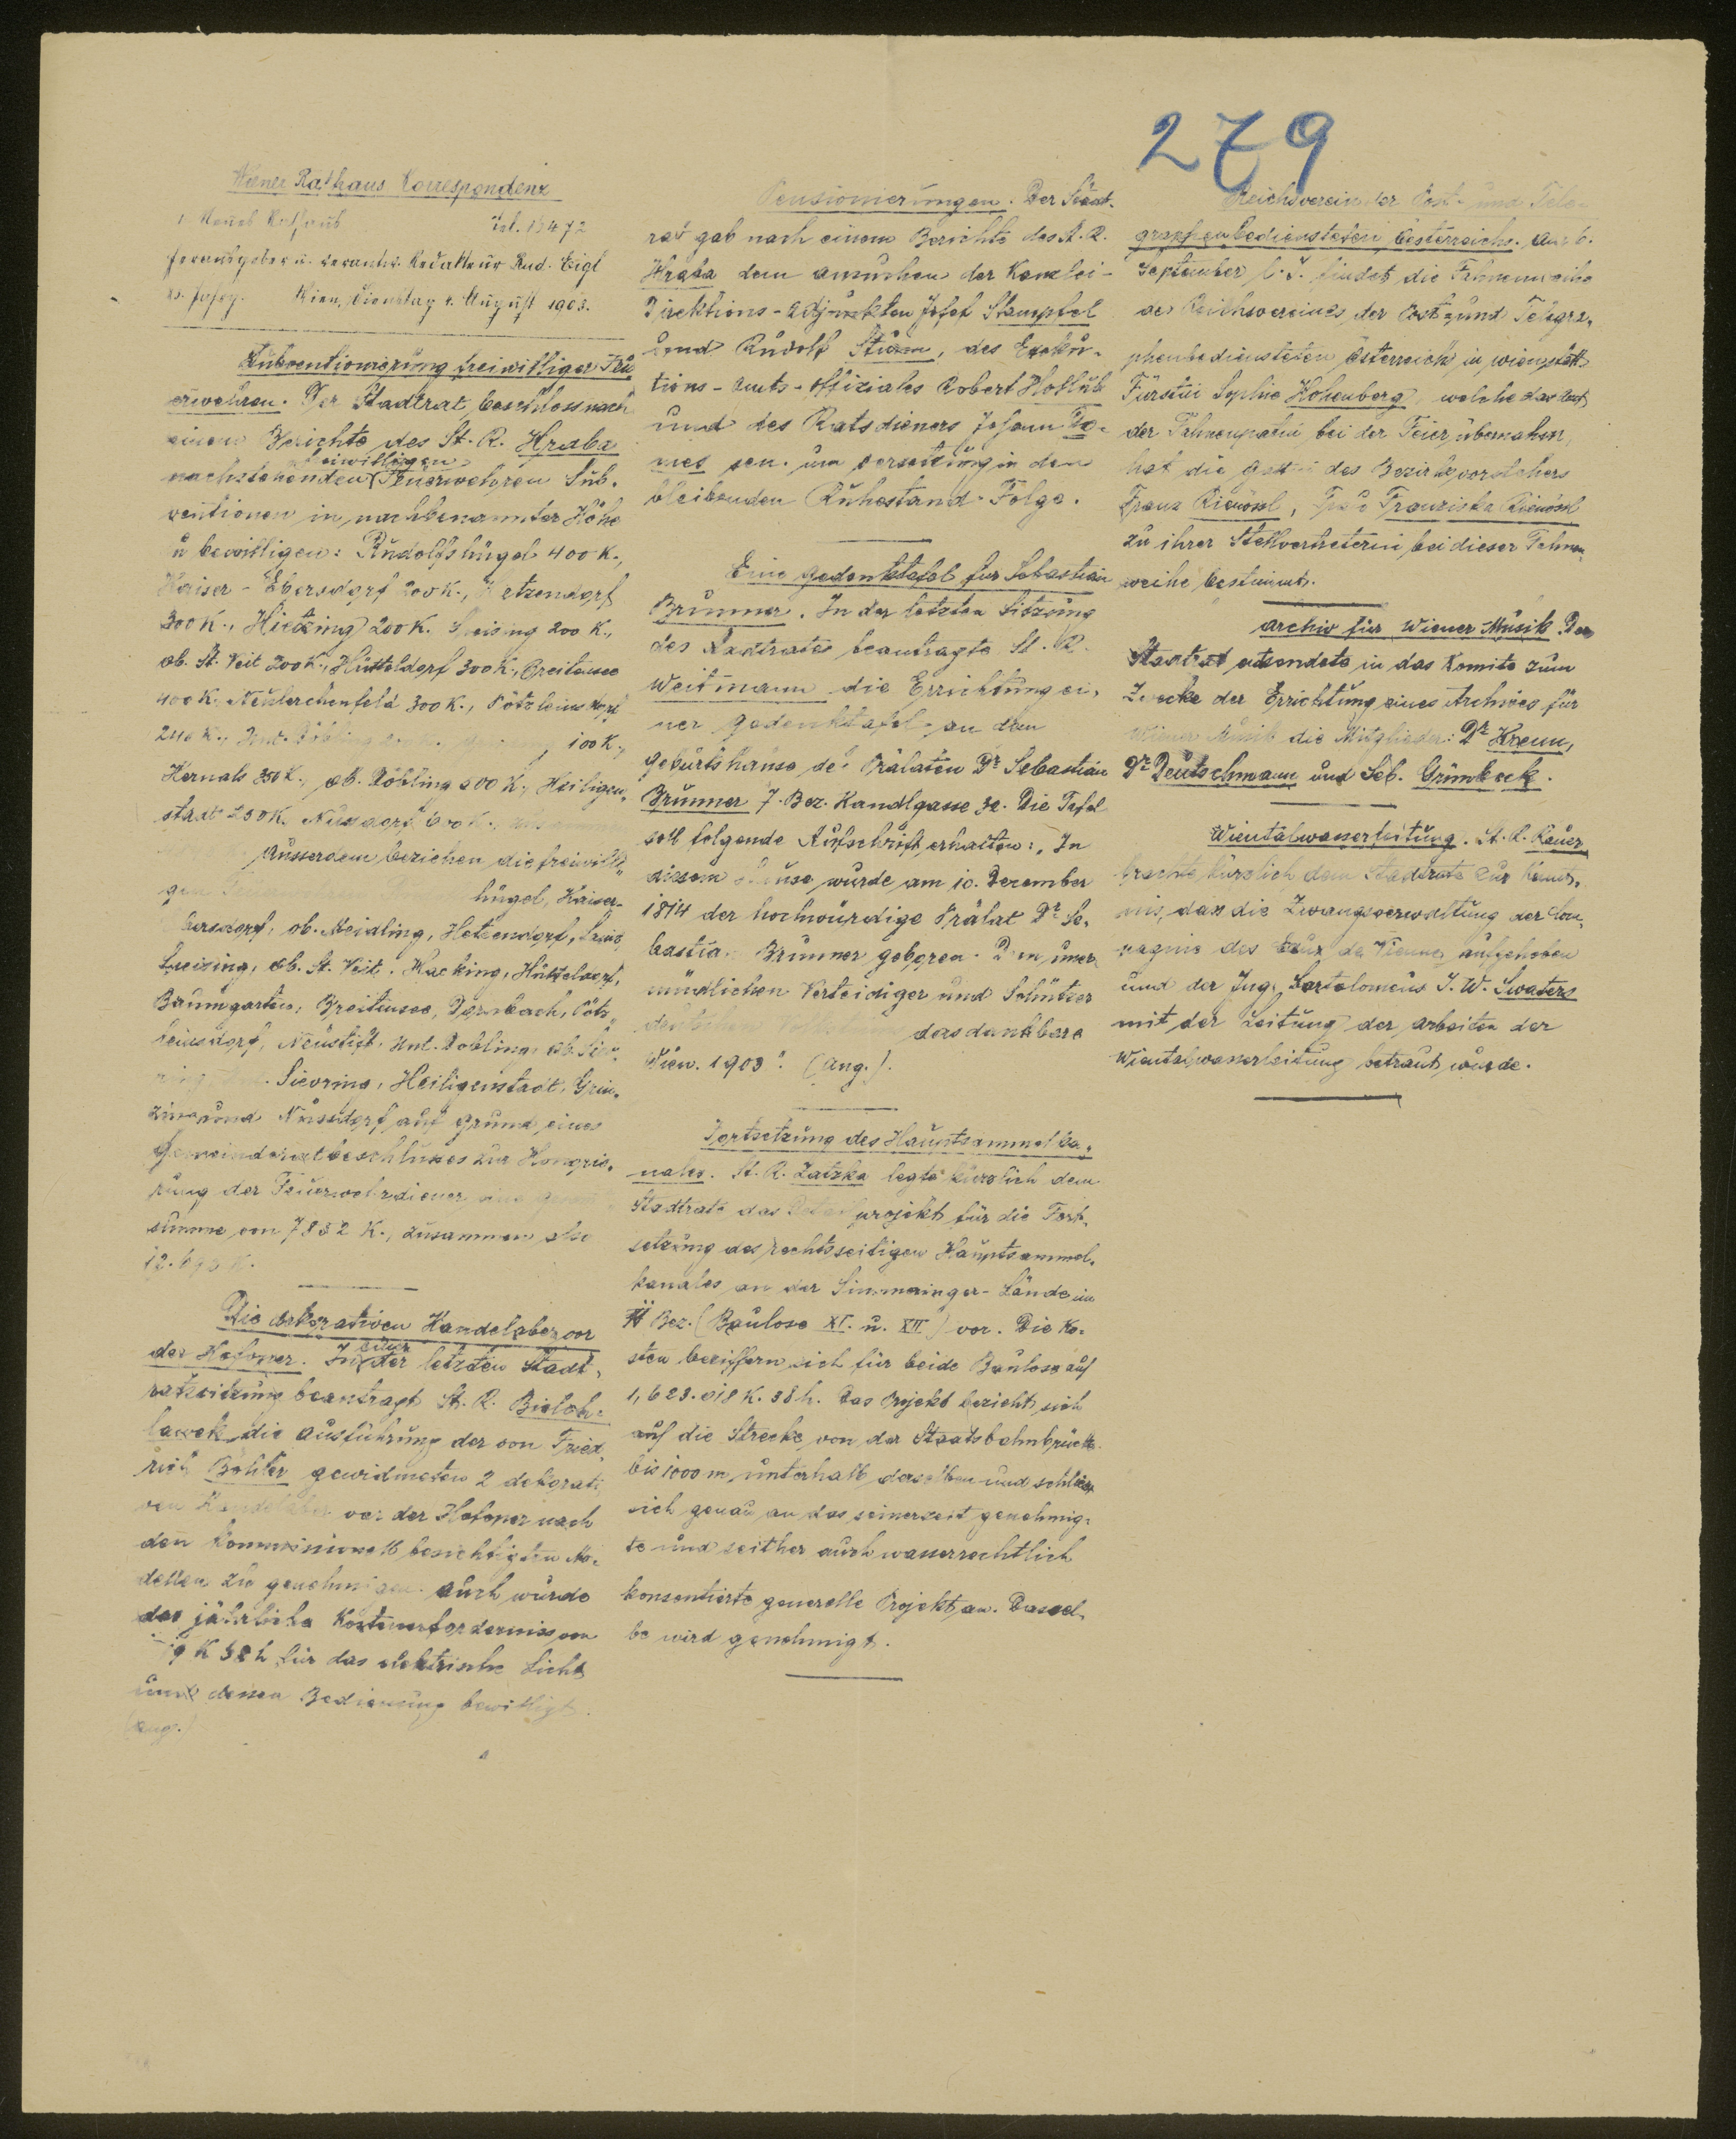 279
Wiener Rathaus Correspondenz
1. Neues Rathaus Tel. 13472
Herausgeber u. verantw. Redakteur Rud. Eigl
Wien, Dienstag 4. August 1903.
Subventionierung freiwilliger Feu
erwehren. Der Stadtrat beschloss nach
einem Berichte des St. R. Hraba
freiwilligen
nachstehenden Feuerwehren Sub-
ventionen in nachbenannter Höhe
zu bewilligen: Rudolfshügel 400 K.,
Kaiser-Ebersdorf 200 K., Hetzendorf
300 K., Hietzing 200 K. Speising 200 K.,
ob. St. Veit 200 K., Hütteldorf 300 K., Breitensee
400 K. Neulerchenfeld 300 K., Pötzleinsdorf
240 K., Unt. Döbling 100 K.,
Hernals 350 K., ob. Döbling 200 K., Heiligen-
stadt 250 K. Nussdorf 600 K.,
Ausserdem beziehen die freiwilli-
gen hügel, Kaiser-
Ebersdorf, ob. Meidling, Hetzendorf,
Speising, ob. St. Veit, Hacking, Hütteldorf,
Baumgarten, Breitensee, Dornbach, Pötz-
leinsdorf, Neustift, Unt. Döbling, ob. Sie-
ring, Sievring, Heiligenstadt, Grin-
zing und Nussdorf auf Grund eines
Gemeinderatsbeschlusses zur Honorie-
rung der Feuerwehrdiener eine
summe von 7832 K., zusammen also
K.
Die dekorativen Kandelaber vor
der Hofoper. In einer der letzten Stadt-
ratssitzung beantragt St. R. Bieloh-
lawek die Ausführung der von Fried-
rich Böhler gewidmeten 2 dekorati-
ven Kandelaber vor der Hofoper nach
den kommissionell besichtigten Mo-
dellen zu genehmigen. Auch wurde
das jährliche Kostenerfordernis von
K 58 h für das elektrische Licht
und dessen Bedienung bewilligt.
(Ang.)
Pensionierungen. Der Stadt-
rat gab nach einem Berichte des St. R.
Hraba dem Ansuchen der Kanzlei-
Direktions-Adjunkten Josef Stampfel
und Rudolf Sturm, des Exeku-
tions-Amts-Offiziales Robert Hollub
und des Ratsdieners Johann
sen. um Versetzung in den
bleibenden Ruhestand Folge.
Eine Gedenktafel für Sebastian
Brunner. In der letzten Sitzung
des Stadtrates beantragte St. R.
Weitmann die Errichtung ei-
ner Gedenktafel an dem
Geburtshause des Prälaten Dr Sebastian
Brunner 7. Bez. Kandlgasse 32. Die Tafel
soll folgende Aufschrift erhalten: „In
diesem Hause wurde am 10. Dezember
1814 der hochwürdige Prälat Dr Se-
bastian Brunner geboren. Dem uner-
müdlichen Verteidiger und Schützer
das dankbare
Wien. 1903". (Ang.).
Fortsetzung des Hauptsammelka-
nales. St. R. Zatzka legte kürzlich dem
Stadtrate das Detailprojekt für die Fort-
setzung des rechtsseitigen Hauptsammel-
kanales an der Simmeringer-Lände im
Bez. (Baulose XI. u. XII) vor. Die Ko-
sten beziffern sich für beide Baulose auf
1,623.018 K. 38 h. Das Projekt bezieht sich
auf die Strecke von der Staatsbahnbrücke
bis 1000 m unterhalb derselben und schliesst
sich genau an das seinerzeit genehmig-
te und seither auch wasserrechtlich
konsentierte generelle Projekt an. Dassel-
be wird genehmigt.
Reichsverein der Post- und Tele-
graphenbediensteten Österreichs. Am 6.
September l. J. findet die Fahnenweihe
des Reichsvereines der Post- und Telegra-
phenbediensteten Österreichs in Wien statt.
Fürstin Sophie Hohenberg, welche das Amt
der Fahnenpatin bei der Feier übernahm,
hat die Gattin des Bezirksvorstehers
Franz Rienössl, Frau Franziska Rienössl
zu ihrer Stellvertreterin bei dieser Fahnen
weihe bestimmt.
Archiv für Wiener Musik. Der
Stadtrat entsendete in das Komite zum
Zwecke der Errichtung eines Archives für
Wiener Musik die Mitglieder: Dr Krenn,
Dr Deutschmann und Seb. Grünbeck.
Wientalwasserleitung. St. R. Rauer
brachte kürzlich dem Stadtrate zur Kennt-
nis, dass die Zwangsverwaltung der Com-
pagnie des Eaux de Vienne aufgehoben
und der Ing. Bartolomeus J. W. Swaters
mit der Leitung der Arbeiten der
Wientalwasserleitung betraut wurde.